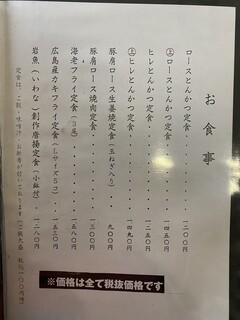 お食事
ロースとんかつ定食・・・・・一二〇〇
㊤ロースとんかつ定食・・・・・一四五〇
ヒレとんかつ定食・・・・・一二五〇
㊤ヒレとんかつ定食・・・・・一四九〇
豚肩ロース生姜焼定食（玉ねぎ入り）・・・九〇〇
豚肩ロース焼肉定食・・・・・一三〇〇
海老フライ定食（3尾）・・・・・一五八〇
広島産カキフライ定食（Lサイズ5コ）・・一五三〇
岩魚（いわな）創作唐揚定食（小鉢付）・・一二八〇
定食は、ご飯・味噌汁・お新香が付いております（ご飯大盛 税抜一〇〇円増）
※価格は全て税抜価格です